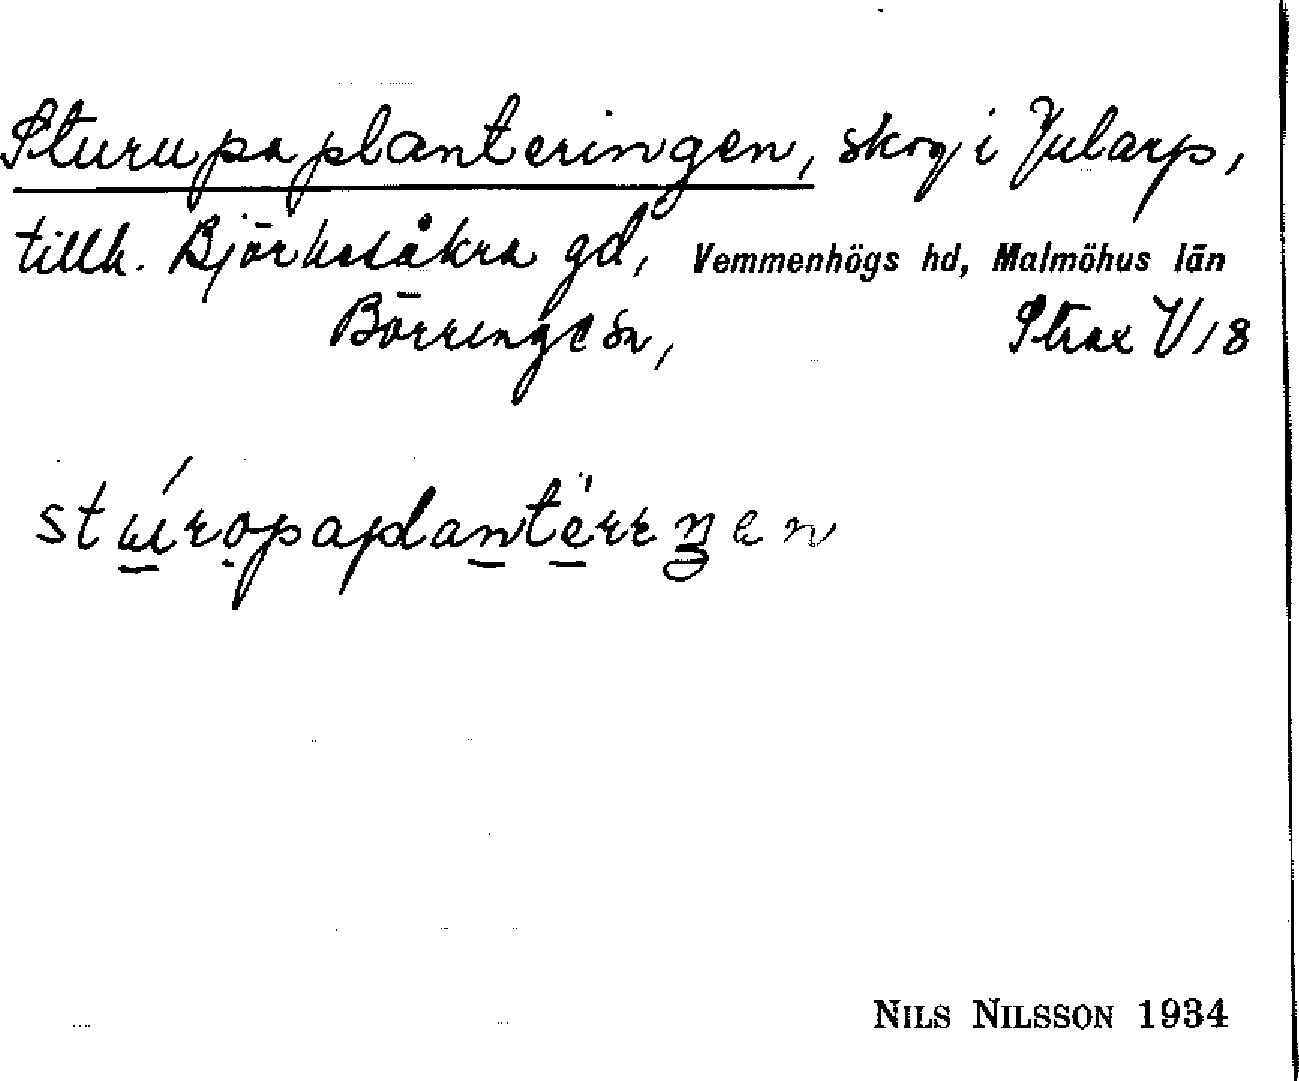 Sturupaplanteringen, skog i Jularp,
tillh. Björkesåkra gd, Vemmenhögs hd, Malmöhus län
Börringe sn, Strax V/8
stúropaplantérrŋen
NILS NILSSON 1934